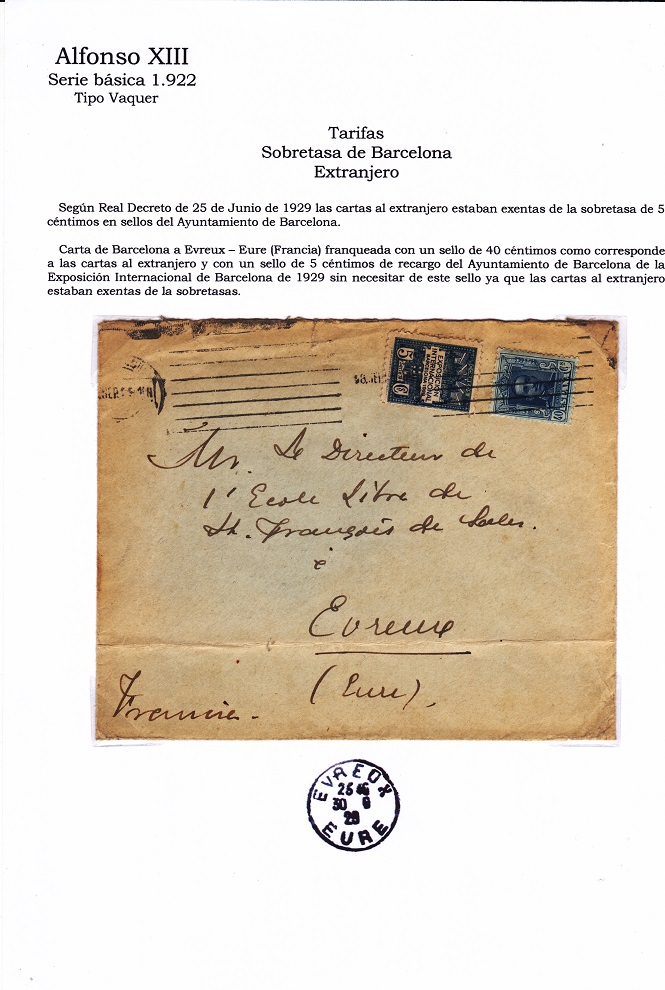 Alfonso XIII
Serie básica 1.922
Tipo Vaquer
Tarifas
Sobretasa de Barcelona
Extranjero
Según Real Decreto de 25 de Junio de 1929 las cartas al extranjero estaban exentas de la sobretasa de 5
céntimos en sellos del Ayuntamiento de Barcelona.
Carta de Barcelona a Evreux – Eure (Francia) franqueada con un sello de 40 céntimos como corresponde
a las cartas al extranjero y con un sello de 5 céntimos de recargo del Ayuntamiento de Barcelona de la
Exposición Internacional de Barcelona de 1929 sin necesitar de este sello ya que las cartas al extranjero
estaban exentas de la sobretasas.
EXPOSICIÓN
INTERNACIONAL
5
ESPAÑA
40
Mr. Le Directeur de
l'Ecole Libre de
St. François de Sales.
Evreux
(Eure),
Francia.
EVREUX
30
29
EURE